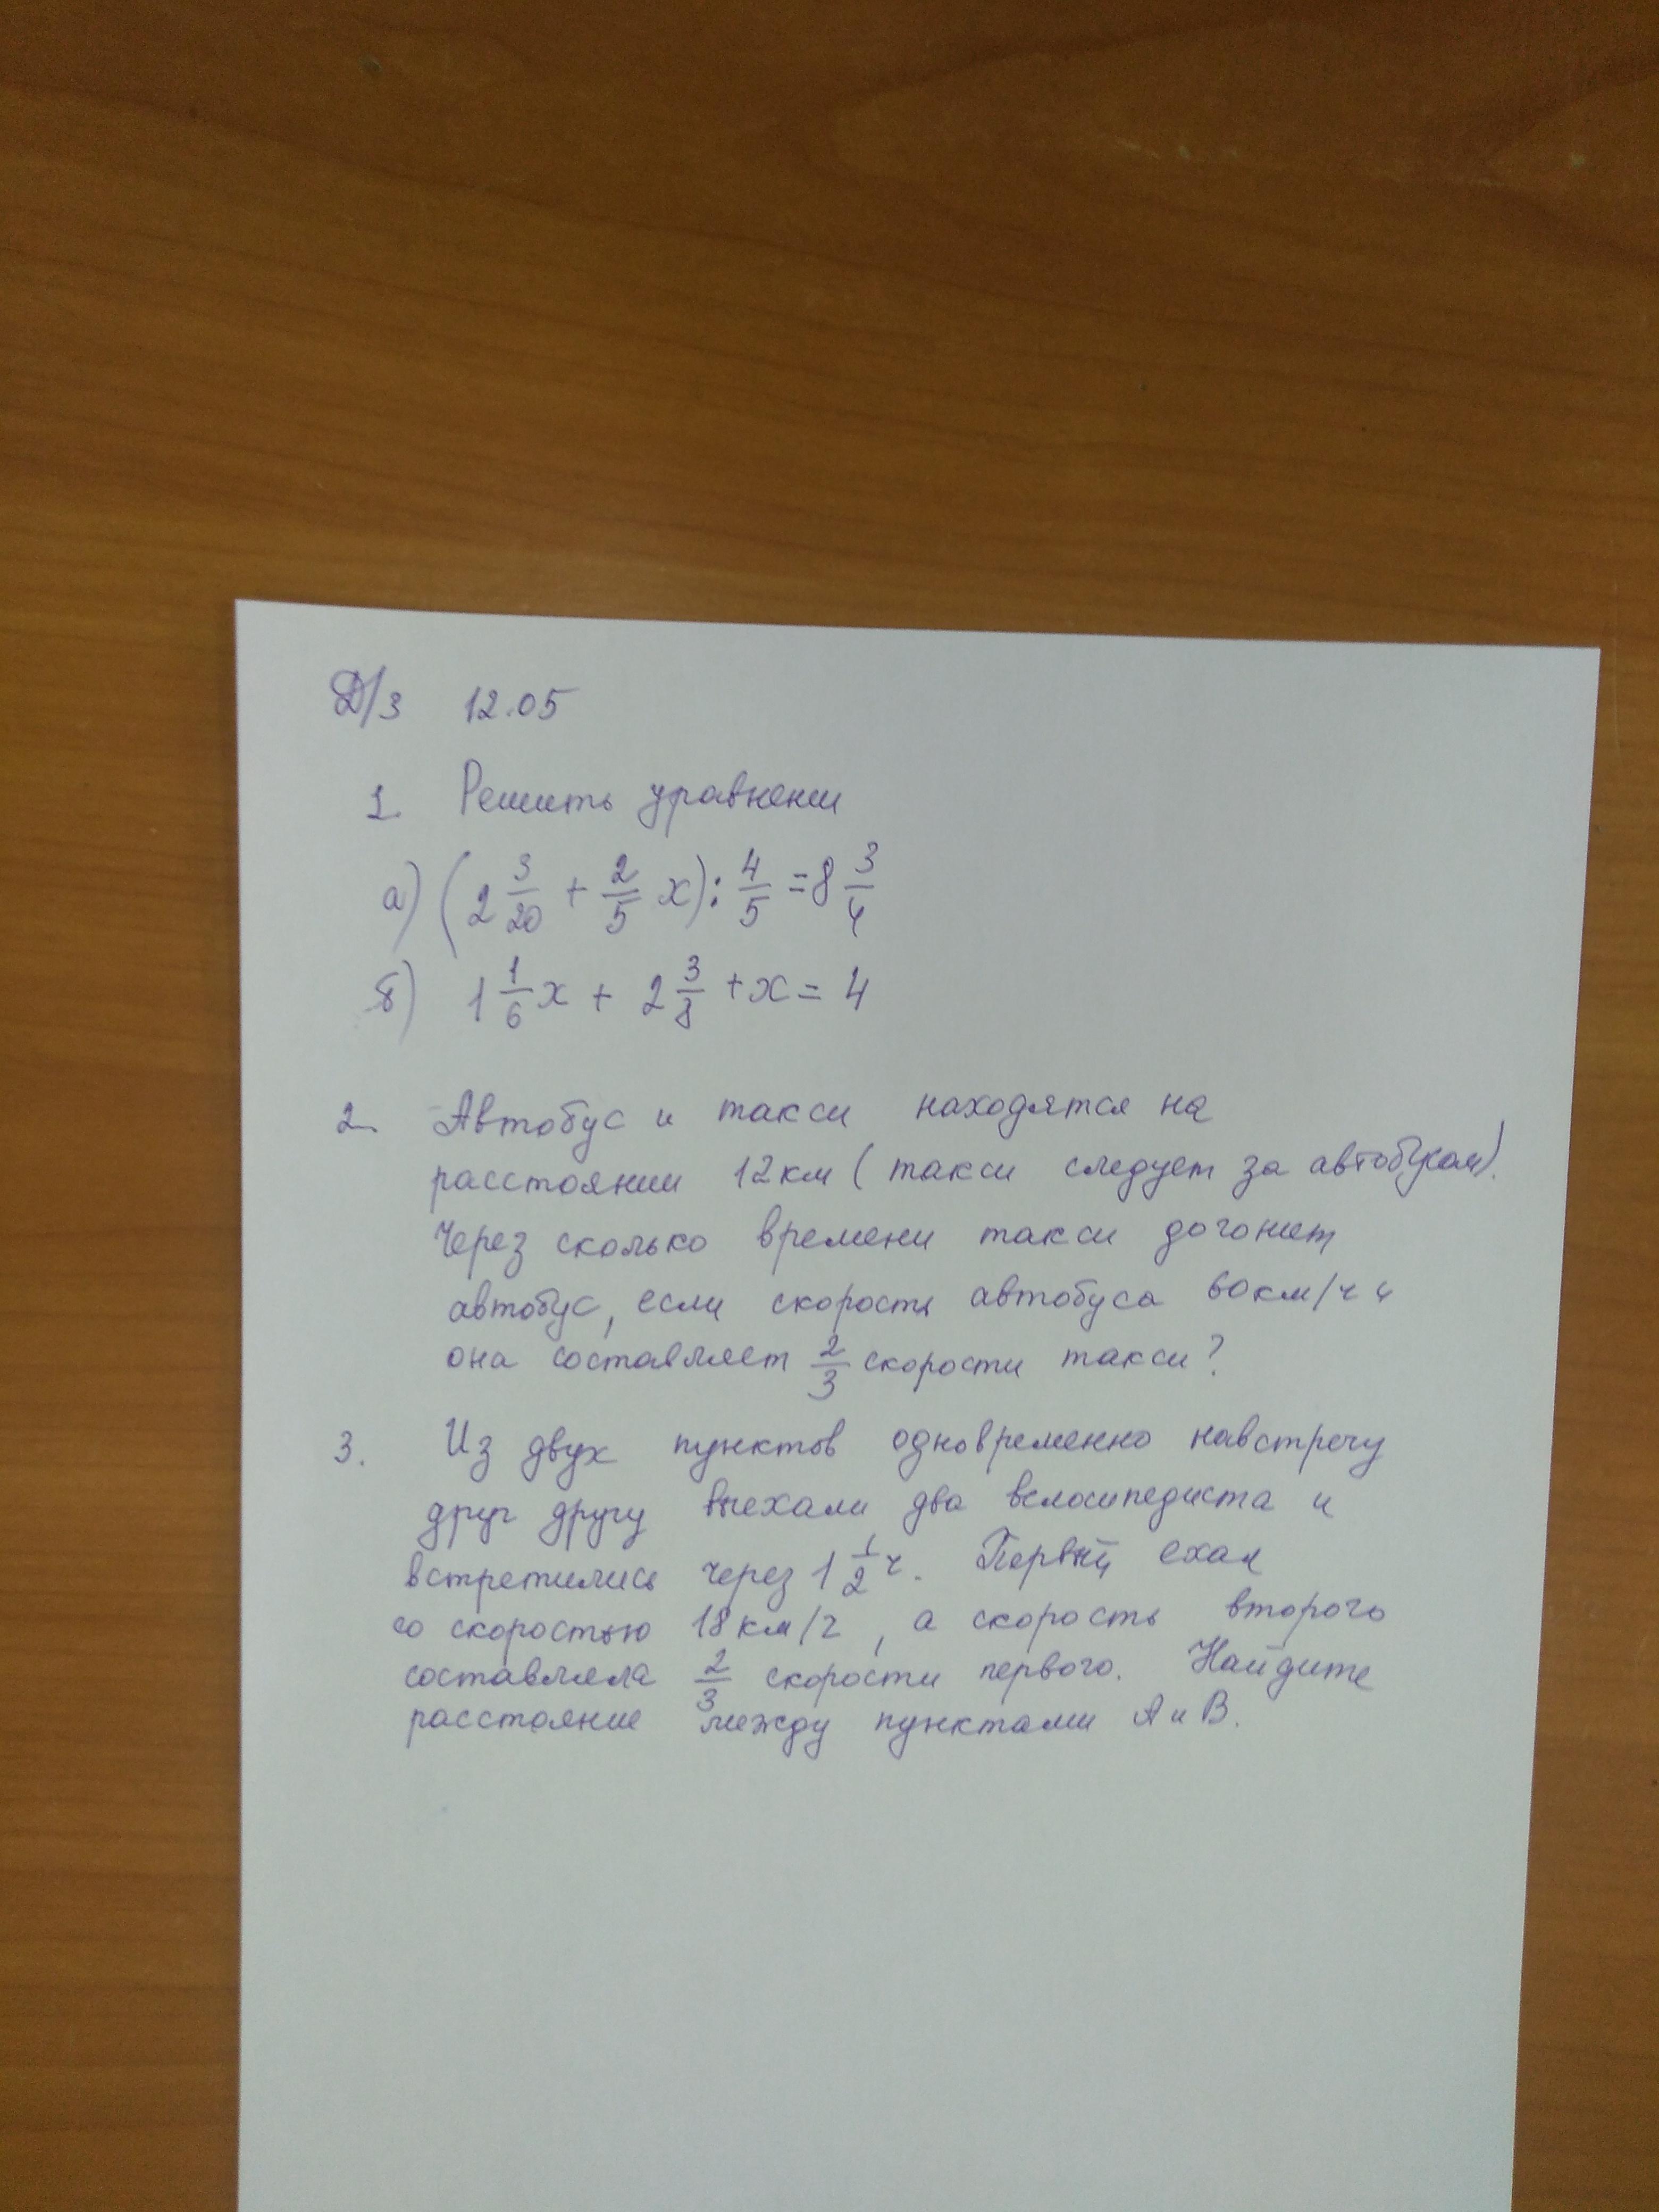 Д/з 12.05
1. Решить уравнении
а) (2 3/20 + 2/5 x) : 4/5 = 8 3/4
б) 1 1/6 x + 2 3/8 + x = 4
2. Автобус и такси находятся на
расстоянии 12 км (такси следует за автобусом).
Через сколько времени такси догонит
автобус, если скорость автобуса 60 км/ч и
она составляет 2/3 скорости такси?
3. Из двух пунктов одновременно навстречу
друг другу выехали два велосипедиста и
встретились через 1 1/2 ч. Первый ехал
со скоростью 18 км/ч, а скорость второго
составляла 2/3 скорости первого. Найдите
расстояние между пунктами А и В.